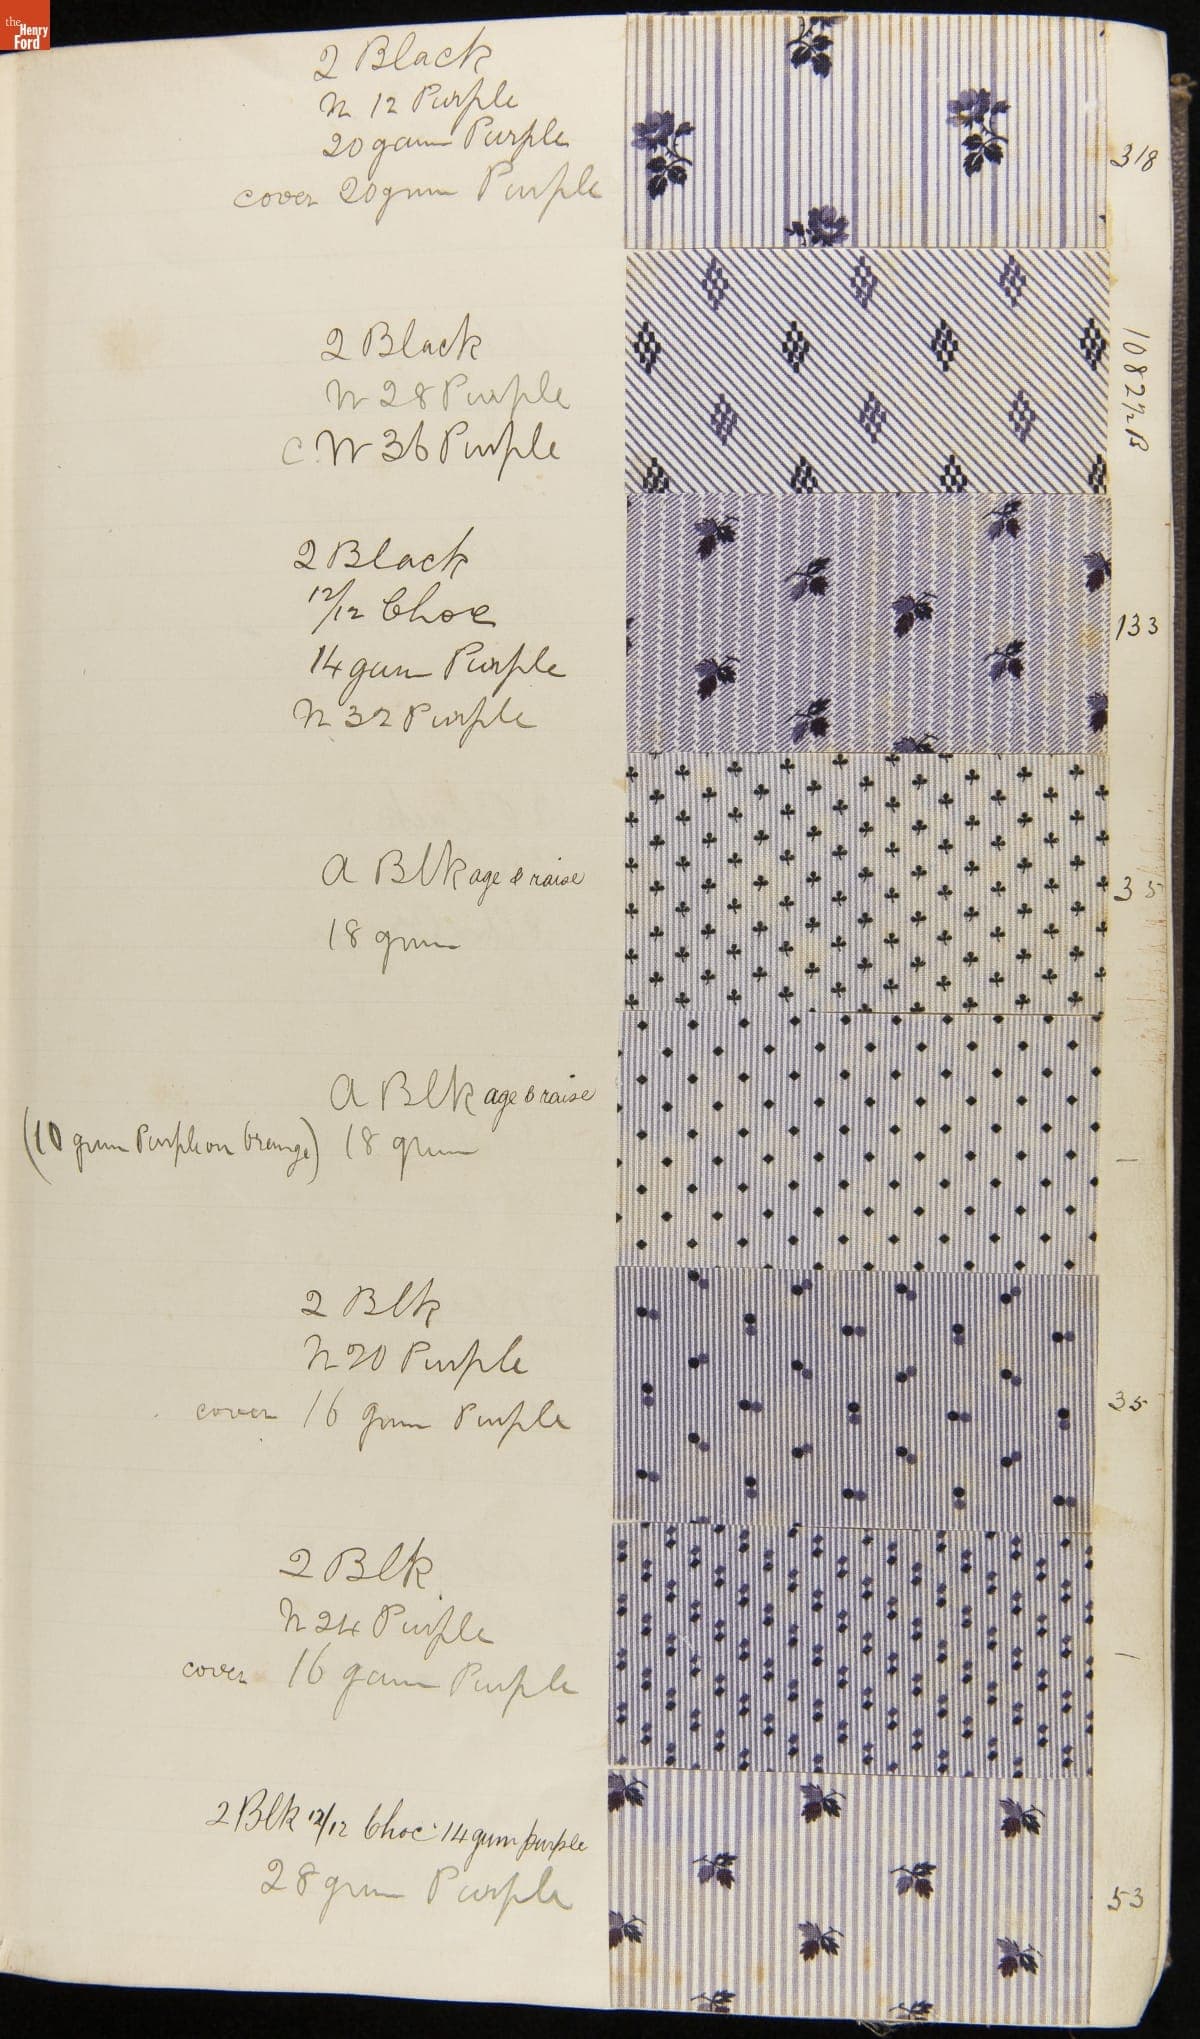 the
Henry
Ford
2 Black
N 12 Purple
20 gum Purple
cover 20 gum Purple
318
2 Black
N 28 Purple
C. N 36 Purple
1082½B
2 Black
12/12 Choc
14 gum Purple
N 32 Purple
133
A Blk age & raise
18 gum
35
A Blk age & raise
(10 gum Purple on Orange) 18 gum
—
2 Blk
N 20 Purple
cover 16 gum Purple
35
2 Blk
N 24 Purple
cover 16 gum Purple
—
2 Blk 12/12 Choc 14 gum purple
28 gum Purple
53